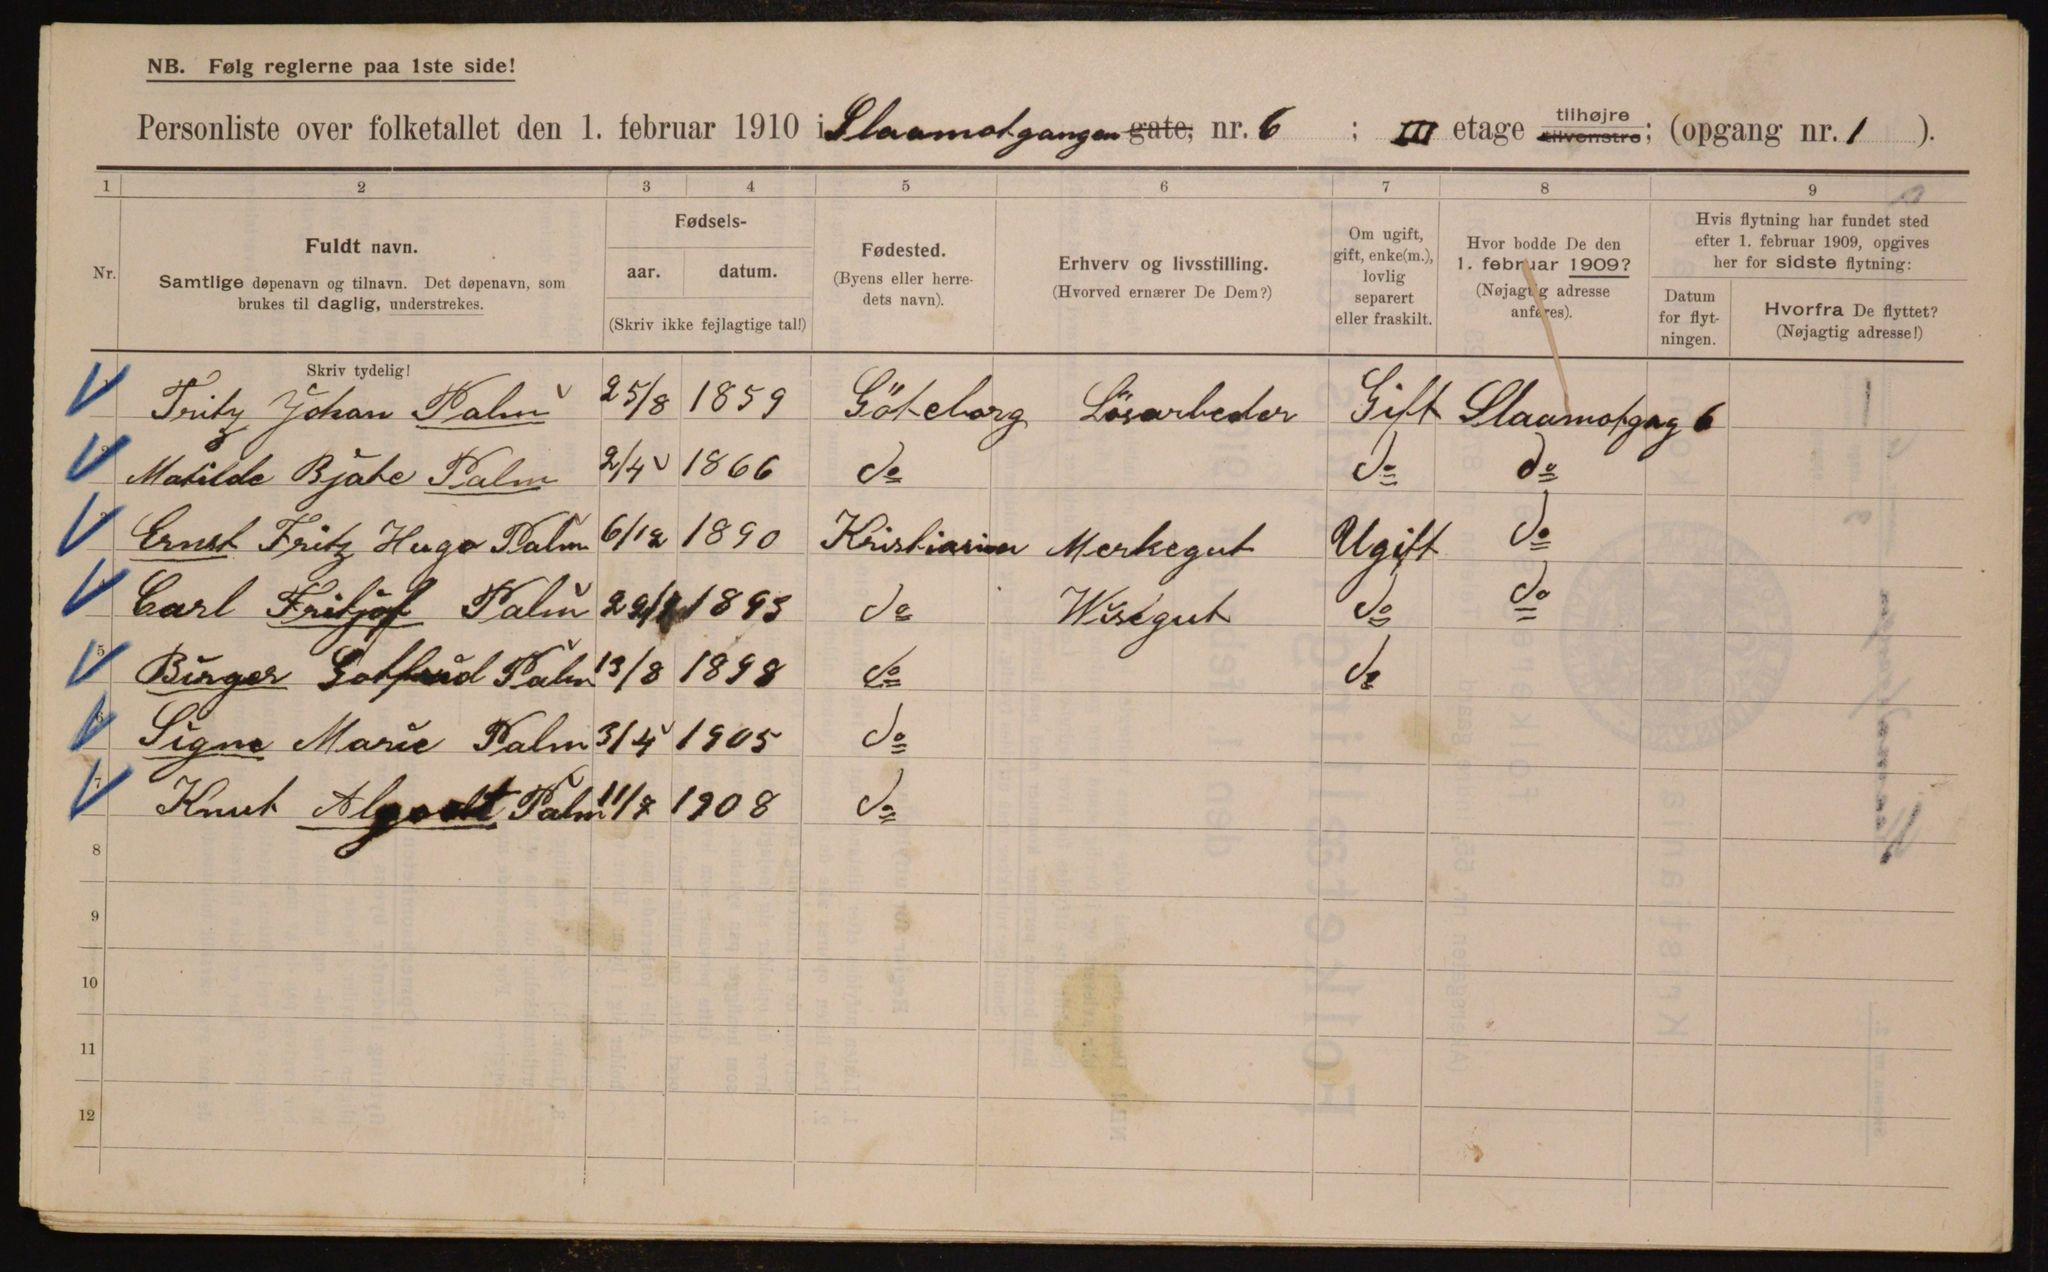 NB. Følg reglerne paa 1ste side!
Personliste over folketallet den 1. februar 1910 i Slaamotgangen gate, nr. 6 ; III etage tilhøjre tilvenstre; (opgang nr. 1 ).
1 2 3 4 5 6 7 8 9
Nr.
Fuldt navn.
Samtlige døpenavn og tilnavn. Det døpenavn, som
brukes til daglig, understrekes.
Skriv tydelig!
Fødsels-
aar. datum.
(Skriv ikke fejlagtige tal!)
Fødested.
(Byens eller herre-
dets navn).
Erhverv og livsstilling.
(Hvorved ernærer De Dem?)
Om ugift,
gift, enke(m.),
lovlig
separert
eller fraskilt.
Hvor bodde De den
1. februar 1909?
(Nøjagtig adresse
anføres).
Hvis flytning har fundet sted
efter 1. februar 1909, opgives
her for sidste flytning:
Datum
for flyt-
ningen.
Hvorfra De flyttet?
(Nøjagtig adresse!)
Fritz Johan Palm 25/8 1859 Göteborg Lösarbeder Gift Slaamotgag 6
Matilde Bjate Palm 2/4 1866 do do do
Ernst Fritz Hugo Palm 6/12 1890 Kristiania Merkegut Ugift do
Carl Fritjof Palm 1893 do Wisegut do do
5 Birger Gotfrid Palm 13/8 1898 do do
6 Signe Marie Palm 3/4 1905 do
7 Knut Palm 11/7 1908 do
8
9
10
11
12